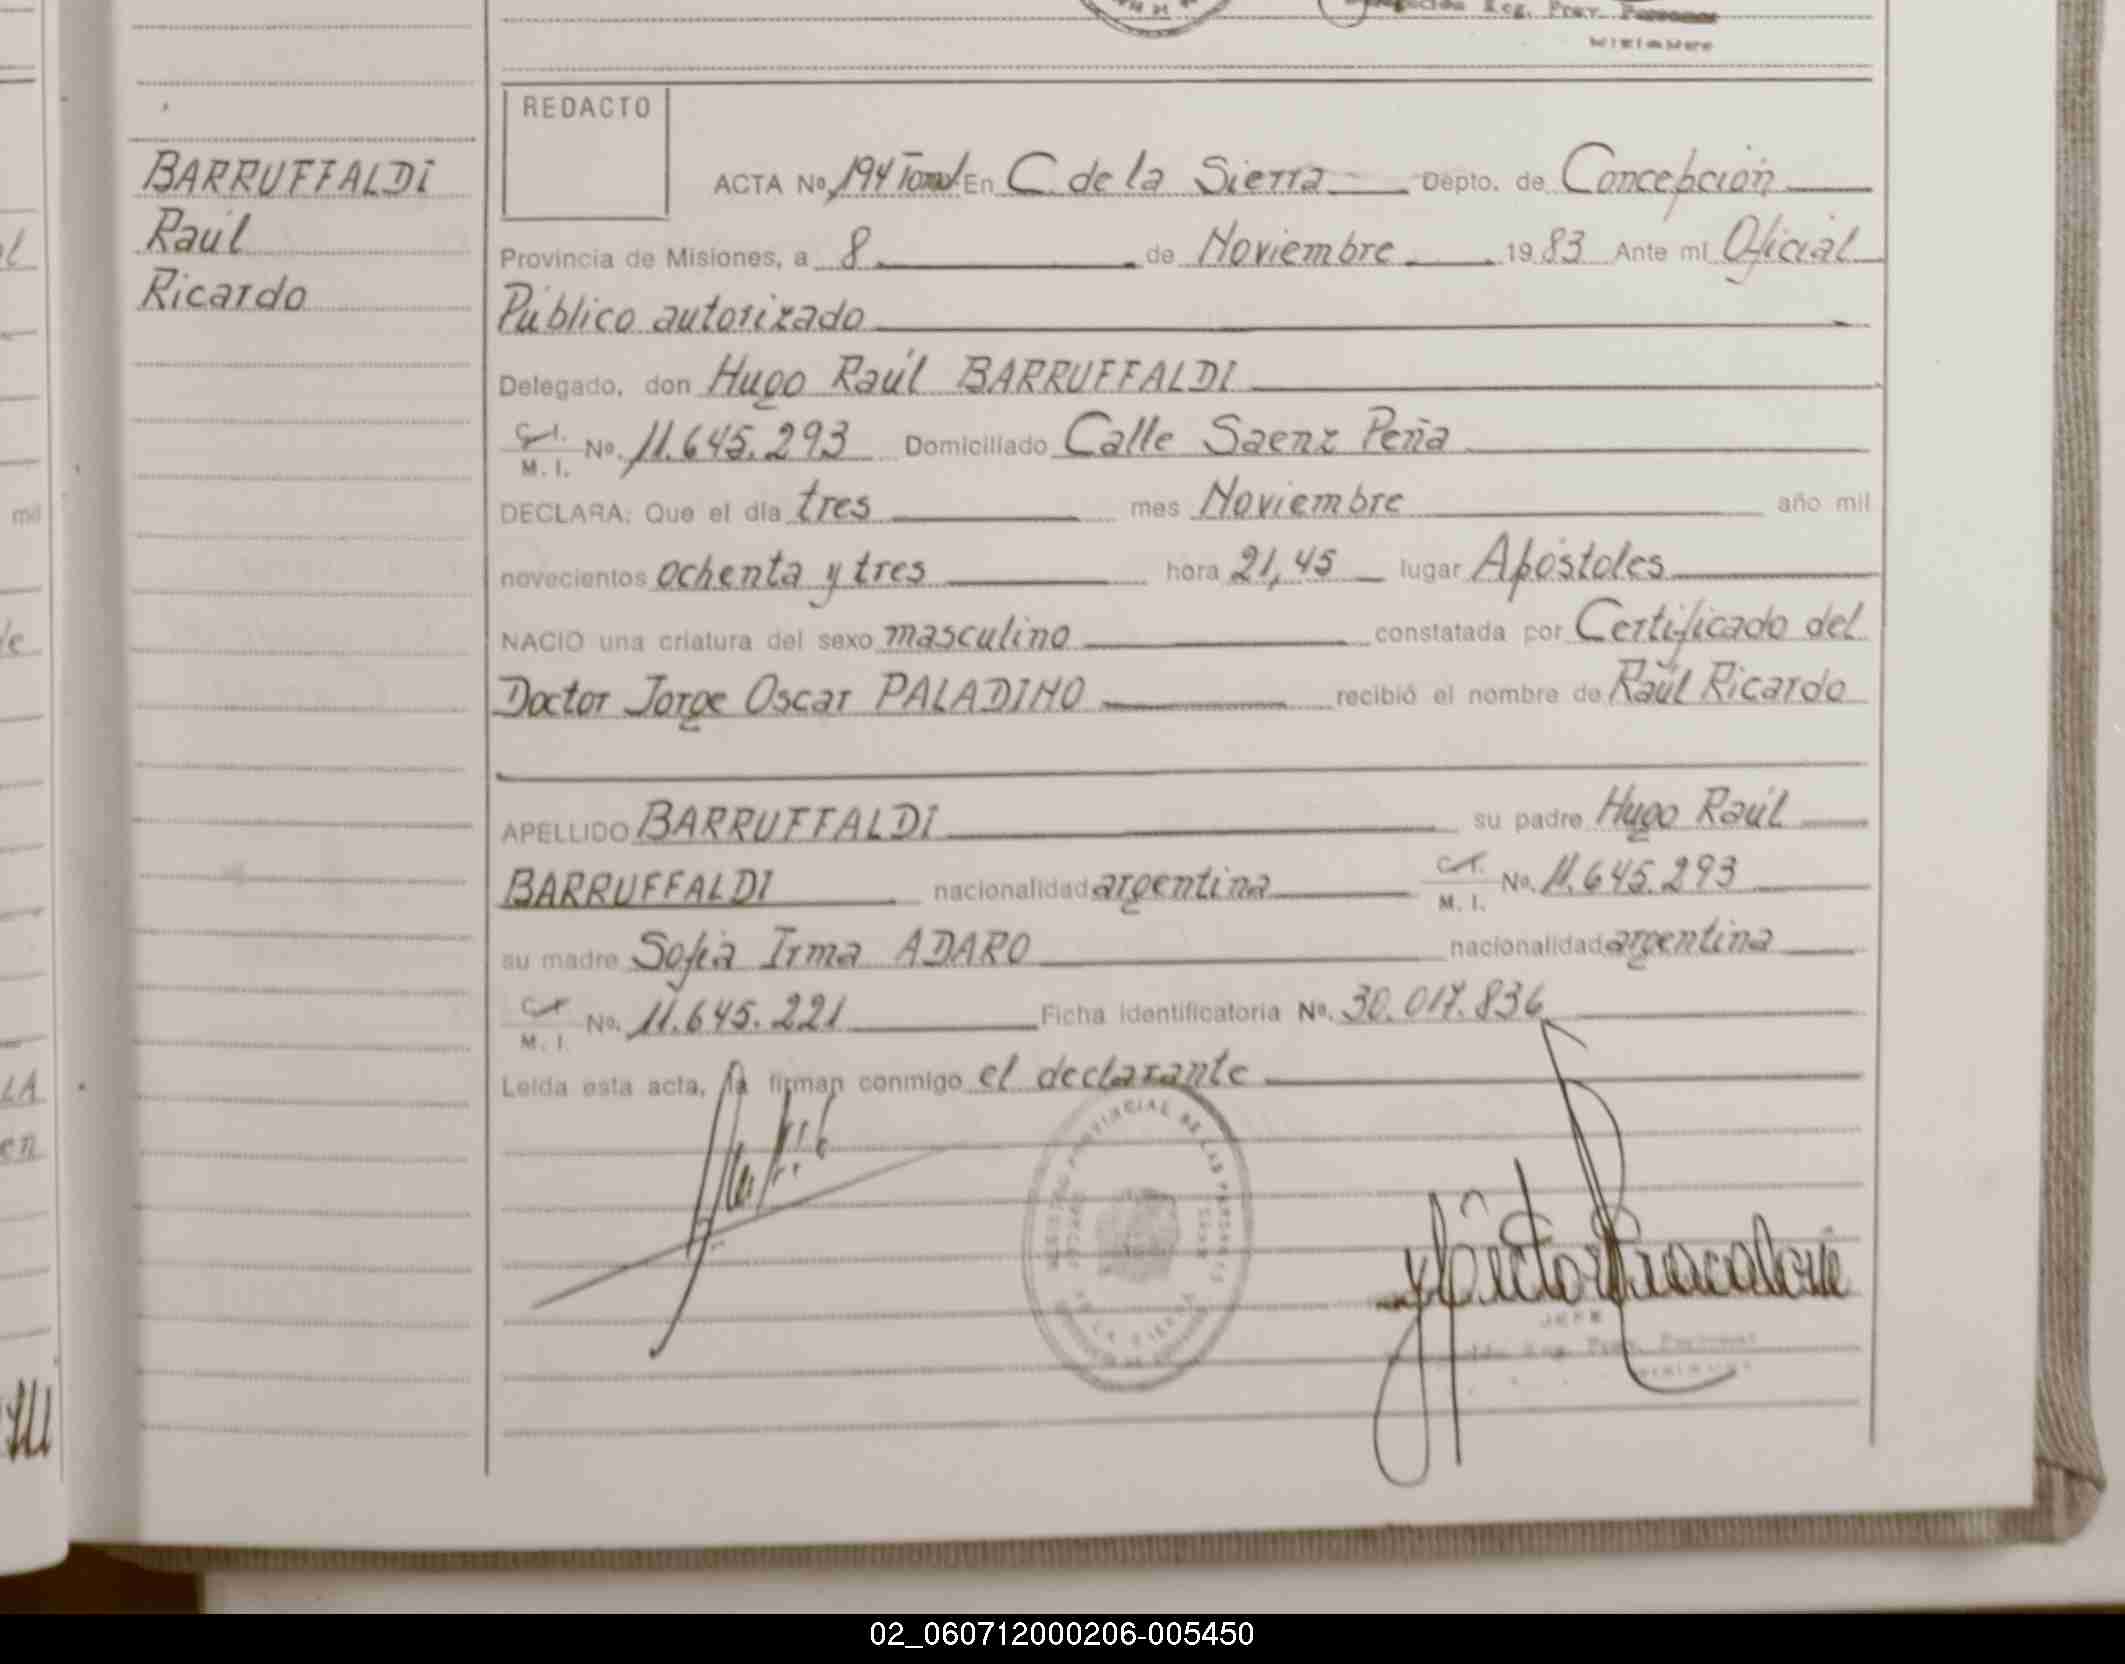 BARRUFFALDI
Raúl
Ricardo
REDACTO
ACTA No. 194 Tomo I En C. de la Sierra Depto. de Concepción
Provincia de Misiones, a 8 de Noviembre 1983 Ante mi Oficial
Público autorizado
Delegado, don Hugo Raúl BARRUFFALDI
C. I.
M. I. No. 11.645.293 Domiciliado Calle Saenz Peña
DECLARA: Que el día tres mes Noviembre año mil
novecientos ochenta y tres hora 21,45 lugar Apóstoles
NACIO una criatura del sexo masculino constatada por Certificado del
Doctor Jorge Oscar PALADINO recibió el nombre de Raúl Ricardo
APELLIDO BARRUFFALDI su padre Hugo Raúl
BARRUFFALDI nacionalidad argentina C. I.
M. I. No. 11.645.293
su madre Sofia Irma ADARO nacionalidad argentina
C. I.
M. I. No. 11.645.221 Ficha identificatoria No. 30.017.836
Leida esta acta, la firman conmigo el declarante
JEFE
02_060712000206-005450